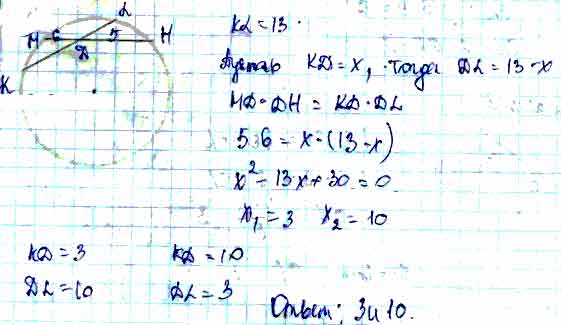 L
M 6 5 H
D
K
KL = 13.
Пусть KD = x, тогда DL = 13 - x
MD · DH = KD · DL
5 · 6 = x · (13 - x)
x² - 13x + 30 = 0
x₁ = 3 x₂ = 10
KD = 3 KD = 10
DL = 10 DL = 3
Ответ: 3 и 10.